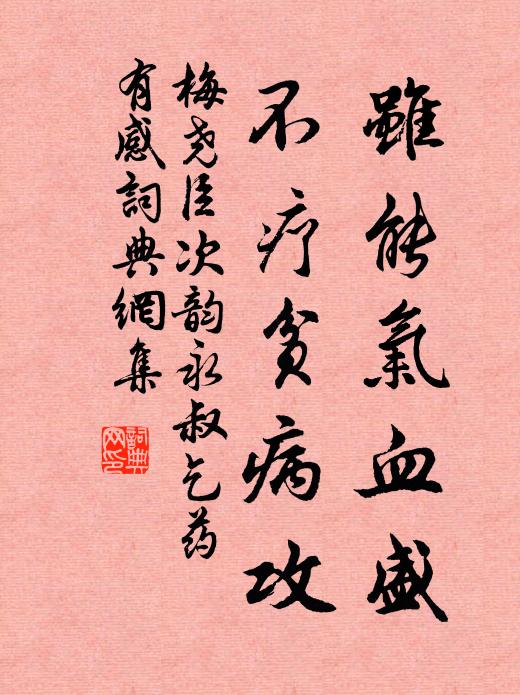 雖能氣血盛
不疗貧病攻
梅尧臣次韵永叔乞药
有感詞典網集
詞典
网印